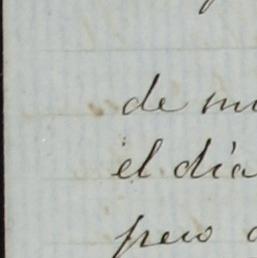 de
el día
pero